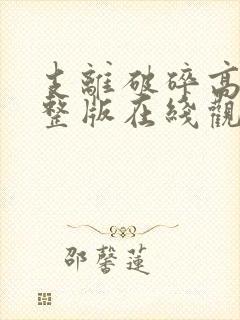 支離破碎高
整版在綫觀
邵馨蓮